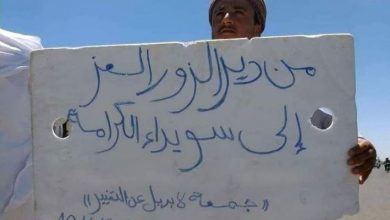 من دير الزور العز
إلى سويداء الكرامة
جمعة لا بديل عن التغيير))